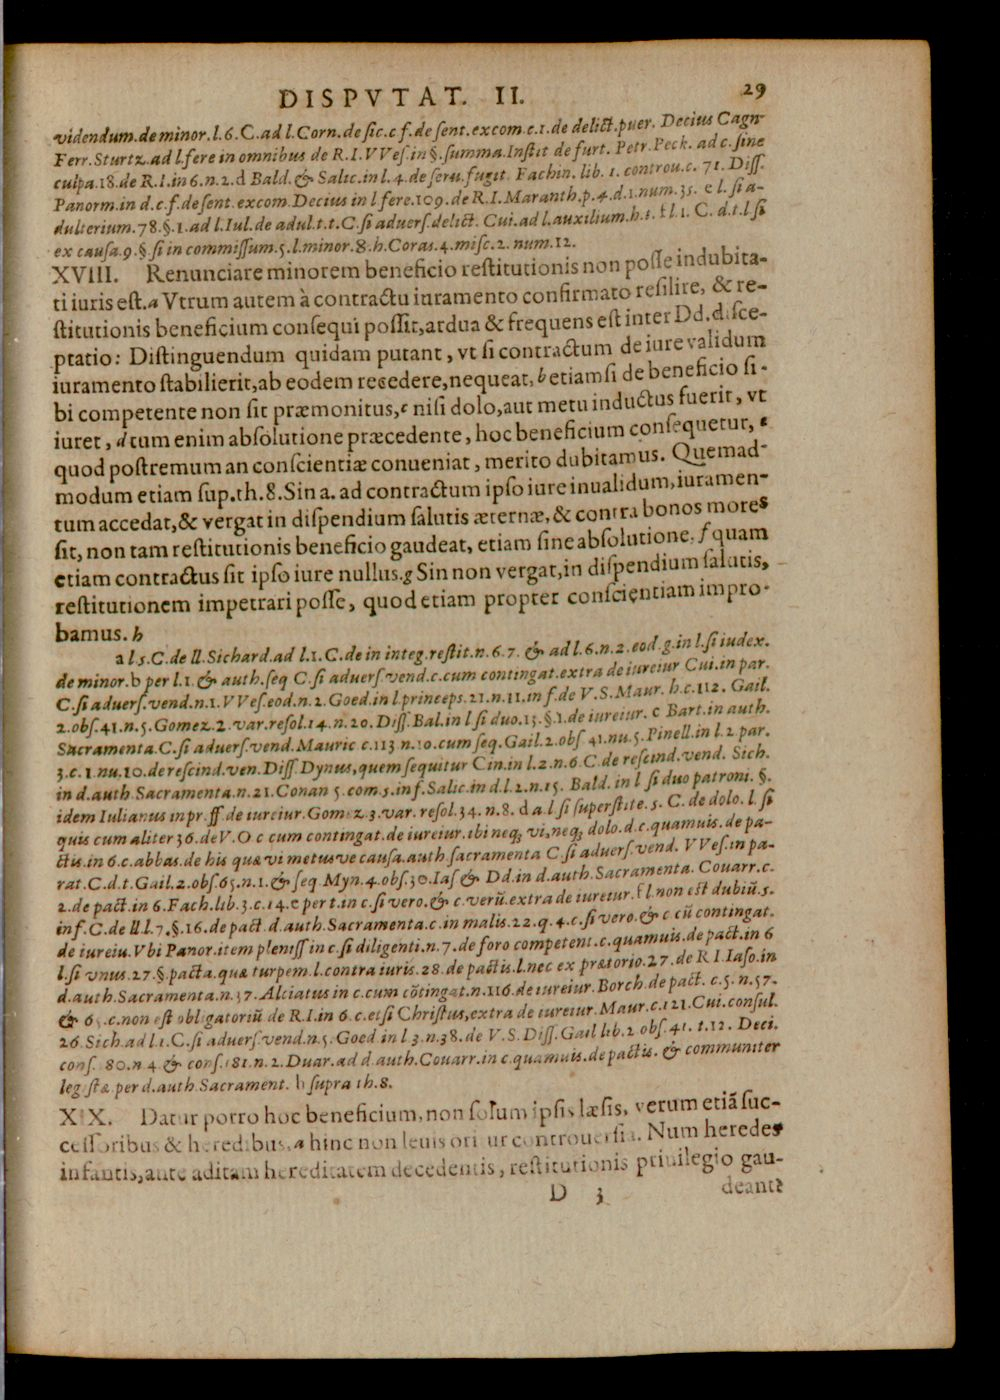 DISPVTAT. II. 29
videndum.de minor.l.6.C.ad l.Corn.de sic.c f.de sent.excom.c.1.de delict.puer. Decius Cagn
Ferr.Sturtz.ad l.fere in omnibus de R.I.VVes.in §.summa.Instit de furt. Petr.Peck. ad c.sine
culpa.18.de R.I.in 6.n.2.d Bald.& Salic.in l.4.de seru.fugit. Fachin. lib. 1. controu.c. 71. Diss.
Panorm.in d.c.f.de sent.excom.Decius in l fere.109.de R.I.Maranth.p.4.d.1.num.35. e l. si a-
dulterium.78.§.1.ad l.Iul.de adul.t.t.C.si aduers.delict. Cui.ad l.auxilium.h.t. f l.1. C. d.t.l.si
ex causa.9.§.si in commissum.5.l.minor.8.h.Coras.4.misc.2. num.12.
XVIII. Renunciare minorem beneficio restitutionis non posse indubita-
ti iuris est.a Vtrum autem à contractu iuramento confirmato resilire, & re-
stitutionis beneficium consequi possit,ardua & frequens est inter Dd.disce-
ptatio: Distinguendum quidam putant, vt si contractum de iure validum
iuramento stabilierit,ab eodem recedere,nequeat, b etiamsi de beneficio si-
bi competente non sit præmonitus,c nisi dolo,aut metu inductus fuerit, vt
iuret, d tum enim absolutione præcedente, hoc beneficium consequetur, e
quod postremum an conscientiæ conueniat, merito dubitamus. Quemad-
modum etiam sup.th.8.Sin a. ad contractum ipso iure inualidum,iuramen-
tum accedat,& vergat in dispendium salutis æternæ,& contra bonos mores
sit, non tam restitutionis beneficio gaudeat, etiam sine absolutione, f quam
etiam contractus sit ipso iure nullus.g Sin non vergat,in dispendium salutis,
restitutionem impetrari posse, quod etiam propter conscientiam impro-
bamus. h
a l 5.C.de ll.Sichard.ad l.1.C.de in integ.restit.n.6.7. & ad l.6.n.2.eod.g.in l.si iudex.
de minor.b per l.1.& auth.seq C.si aduers.vend.c.cum contingat.extra de iureiur Cui.in par.
C.si aduers.vend.n.1.VVes.eod.n.2.Goed.in l.princeps.21.n.11.in f.de V.S.Maur. h.c.112. Gail.
2.obs.41.n.5.Gomez.2.var.resol.14.n.20.Diss.Bal.in l si duo.13.§.1.de iureiur. c Bart.in auth.
Sacramenta.C.si aduers.vend.Mauric c.113 n.10.cum seq.Gail.2.obs 41.nu.5.Pinell.in l.2 par.
3.c.1 nu.10.de rescind.ven.Diss.Dynus,quem sequitur Cin.in l.2.n.6 C.de rescind.vend. Sich.
in d.auth Sacramenta.n.21.Conan 5.com.5.inf.Salic.in d.l 2.n.15. Bald. in l si duo patroni. §.
idem Iulianus in pr.ff.de iureiur.Gomez.3.var.resol.34.n.8. d a.l si superstite.5. C.de dolo. l. si
quis cum aliter 36.de V.O c cum contingat.de iureiur.ibi neq; vi,neq; dolo.d.c.quamuis.de pa-
ctis.in 6.c.abbas.de his quæ vi metusve causa.auth.sacramenta C.si aduers.vend. VVes.in pa-
rat.C.d.t.Gail.2.obs.65.n.1.& seq Myn.4.obs.30.Ias & Dd.in d.auth.Sacramenta. Couarr.c.
2.de pact.in 6.Fach.lib.3.c.14.e per t.in c.si vero.& c.verũ.extra de iureiur.f l.non est dubiũ.5.
inf.C.de ll.l.7.§.16.de pact d.auth.Sacramenta.c.in malis.22.q.4.c.si vero.& c cũ contingat.
de iureiu.Vbi Panor.item pleniss in c.si diligenti.n.7.de foro competent.c.quamuis.de pact.in 6
l.si vnus.27.§.pacta.quæ turpem.l.contra iuris.28.de pactis.l.nec ex prætorio.27.de R I.Iaso.in
d.auth.Sacramenta.n.37.Alciatus in c.cum cõtingat.n.116.de iureiur.Borch.de pact. c.5. n.57.
& 65.c.non est obligatoriũ de R.I.in 6.c.etsi Christus,extra de iureiur.Maur.c.121.Cui.consul.
26.Sich.ad l.1.C.si aduers.vend.n.5.Goed.in l 3.n.38.de V.S.Diss.Gail lib.2 obs.41. t.12. Deci.
cons. 80.n 4 & cons.181.n.2.Duar.ad d.auth.Couarr.in c.quamuis.de pactis. & communiter
legistæ per d.auth.Sacrament. h supra th.8.
XIX. Datur porro hoc beneficium,non solum ipsis læsis, verum etiã suc-
cessoribus & heredibus,a hinc non leuis oritur controuersia. Num heredes
infantis,ante aditam hereditatem decedentis, restitutionis priuilegio gau-
D 3 deant?